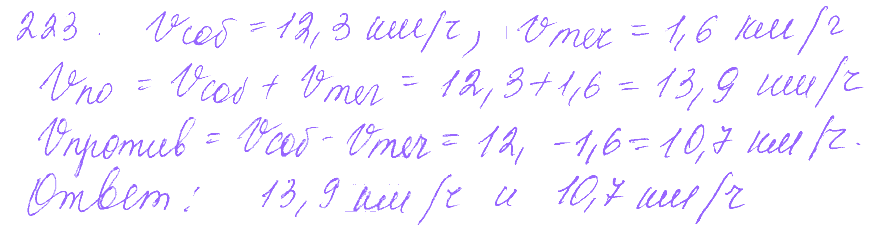 223. Vсоб = 12,3 км/ч, Vтеч = 1,6 км/ч
Vпо = Vсоб + Vтеч = 12,3 + 1,6 = 13,9 км/ч
Vпротив = Vсоб - Vтеч = 12, - 1,6 = 10,7 км/ч.
Ответ: 13,9 км/ч и 10,7 км/ч